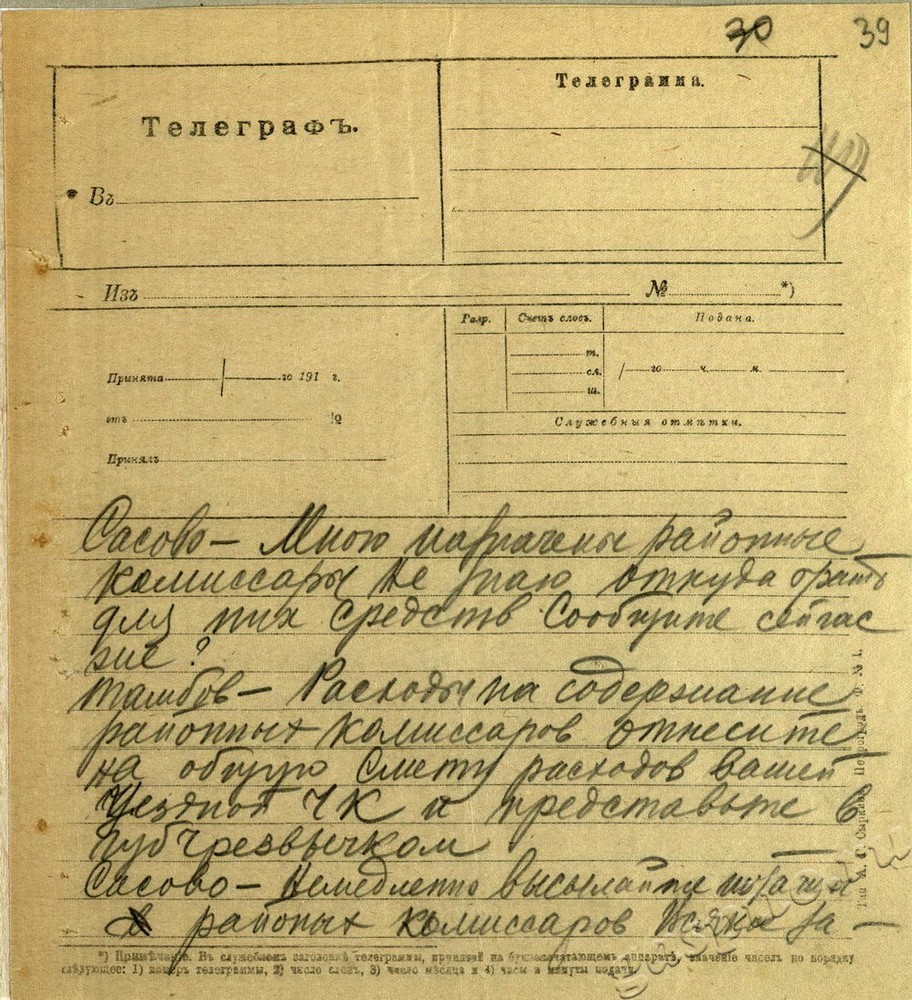 30 39
Телеграфъ.
Телеграмма.
Въ
Изъ № *)
Разр. Счетъ словъ. Подана.
т.
Принята го 191 г. сл. го ч. м.
ш.
отъ №
Служебныя отмѣтки.
Принялъ
Сасово – Мною назначены районные
комиссары не знаю откуда брать
для них средств Сообщите сейчас
же?
Тамбов – Расходы на содержание
районных комиссаров отнесите
на общую смету расходов вашей
Уездной ЧК и представьте в
губчрезвычком
Сасово – Немедленно высылайте
в районых комиссаров Всяки за –
*) Примѣчаніе. Въ служебномъ заголовкѣ телеграммы, принятой на буквопечатающемъ аппаратѣ, значеніе чиселъ по порядку
слѣдующее: 1) номеръ телеграммы, 2) число словъ, 3) число мѣсяца и 4) часы и минуты подачи.
Петроградъ. Ф. № 1.